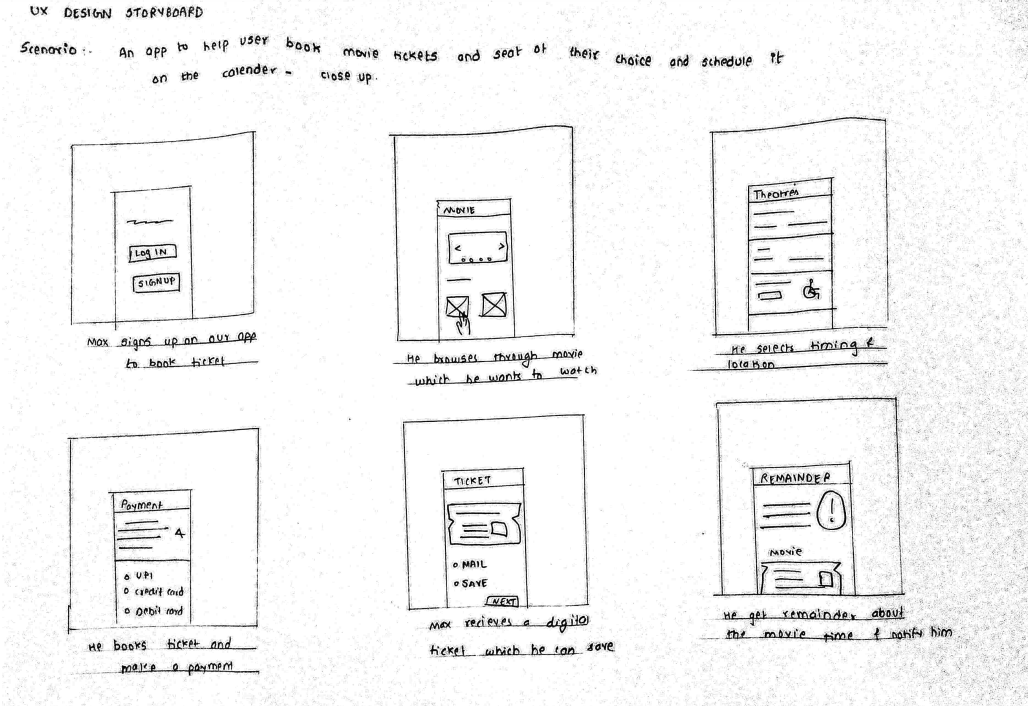 UX DESIGN STORYBOARD
Scenario :- An app to help user book movie tickets and seat of their choice and schedule it
on the calender - close up.
LOG IN
SIGNUP
Max signs up on our app
to book ticket
MOVIE
< >
He browses through movie
which he wants to watch
Theatres
He selects timing &
location
Payment
4
UPI
credit card
Debit card
He books ticket and
make a payment
TICKET
MAIL
SAVE
NEXT
Max recieves a digital
ticket which he can save
REMAINDER
!
Movie
He get remainder about
the movie time & notify him